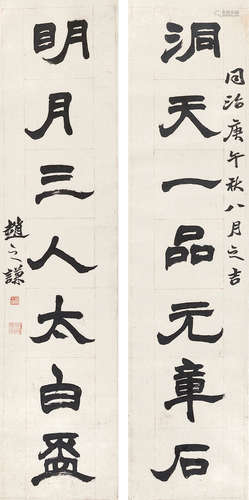 同治庚午秋八月之吉
洞天一品元章石
明月三人太白盃
趙之謙